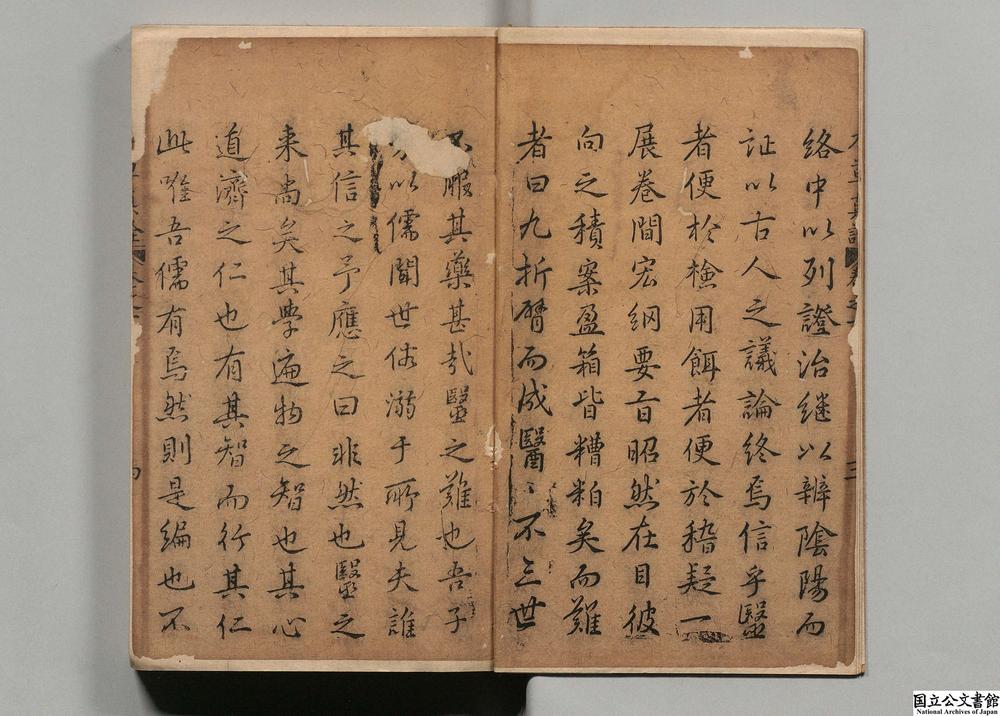 絡中以列證治繼以辨陰陽而
証以古人之議論終焉信乎醫
者便於檢用餌者便於稽疑一
展卷間宏綱要旨昭然在目彼
向之積案盈箱皆糟粕矣而難
者曰九折臂而成醫〻不三世
不服其藥甚哉醫之難也吾子
以儒聞世俗溺于所見夫誰
其信之予應之曰非然也醫之
来尚矣其學遍物之智也其心
道濟之仁也有其智而行其仁
此唯吾儒有焉然則是編也不
国立公文書館
National Archives of Japan